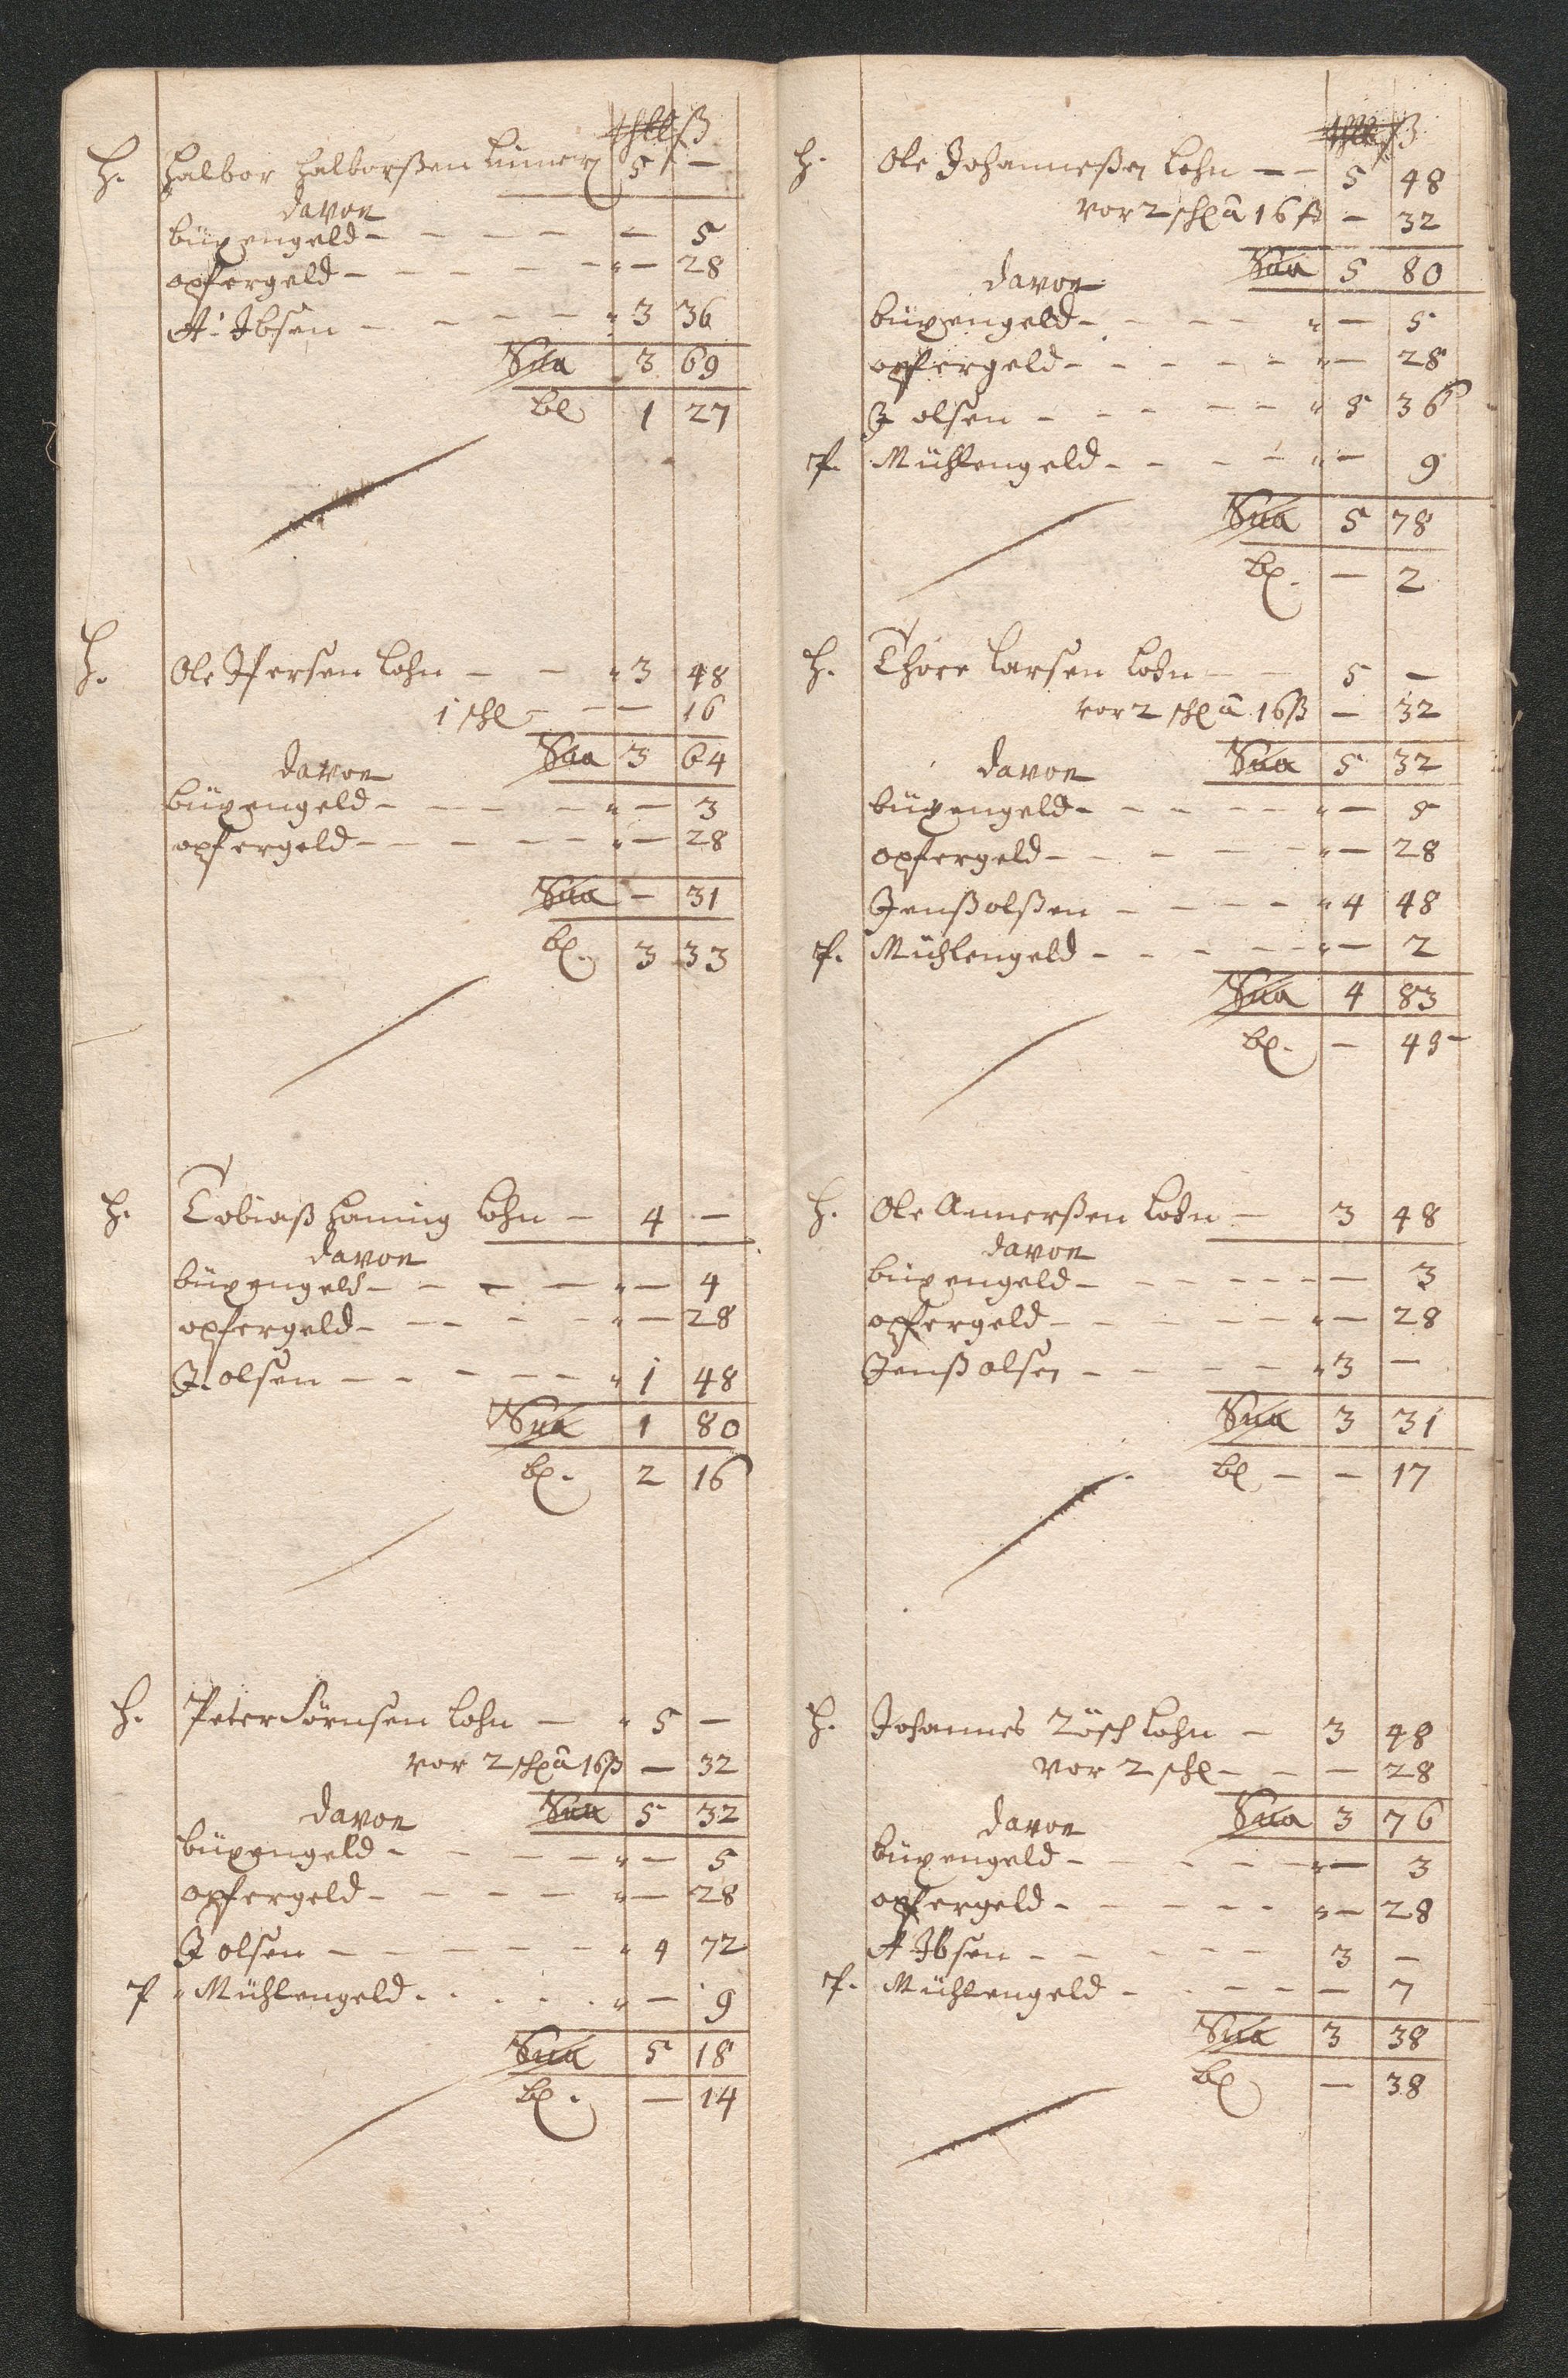 thlr ß
H. Halbor Halborßen 5 —
davon
büxengeld — — 5
opfergeld — — 28
A: Ibsen — 3 36
Sua 3 69
bl 1 27
H. Ole Ifersen Lohn — 3 48
1 schl — — 16
Sua 3 64
davon
büxengeld — — 3
opfergeld — — 28
Sua — 31
bl. 3 33
H. Tobiaß Haning Lohn — 4 —
davon
büxengeld — — 4
opfergeld — — 28
J. olsen — 1 48
Sua 1 80
bl. 2 16
H. Peter Sörnsen Lohn — 5 —
vor 2 schl â 16 ß — 32
Sua 5 32
davon
büxengeld — — 5
opfergeld — — 28
J olsen — 4 72
P Mühlengeld — — 9
Sua 5 18
bl. — 14
thlr ß
H. Ole Johanneßen Lohn — 5 48
vor 2 schl â 16 ß — 32
Sua 5 80
davon
büxengeld — — 5
opfergeld — — 28
J olsen — 5 36
P. Mühlengeld — — 9
Sua 5 78
bl. — 2
H. Thore Larsen Lohn — 5 —
vor 2 schl â 16 ß — 32
Sua 5 32
davon
büxengeld — — 5
opfergeld — — 28
Jenß olßen — 4 48
P. Mühlengeld — — 2
Sua 4 83
bl. — 45
H. Ole Amerßen Lohn — 3 48
davon
büxengeld — — 3
opfergeld — — 28
Jenß olsen — 3 —
Sua 3 31
bl — — 17
H. Johannes Zösch Lohn — 3 48
vor 2 schl — — 28
Sua 3 76
davon
büxengeld — — 3
opfergeld — — 28
A Ibsen — 3 —
P. Mühlengeld — — 7
Sua 3 38
bl — 38